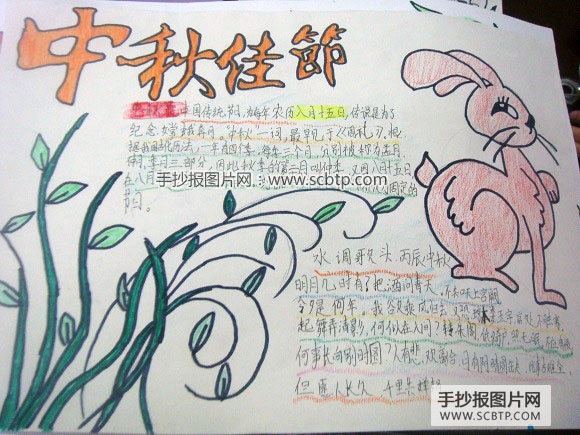 中秋佳節
中秋节 中国传统节日,为每年农历八月十五日,传说是为了
纪念嫦娥奔月。"中秋"一词,最早见于《周礼》,根
据我国古代历法,一年有四个季,每季三个月,分别被称为孟月、
仲月、季月三部分,因此秋季的第二月叫仲秋,又因八月十五日,
在八月
固定的
节日。
手抄报图片网:www.scbtp.com
水调歌头 丙辰中秋
明月几时有?把酒问青天。不知天上宫阙,
今夕是何年。我欲乘风归去,又恐琼楼玉宇,高处不胜寒,
起舞弄清影,何似在人间?转朱阁,低绮户,照无眠。
何事长向别时圆?人有悲欢离合,月有阴晴圆缺,
但愿人长久 千里共婵娟
手抄报图片网
WWW.SCBTP.COM